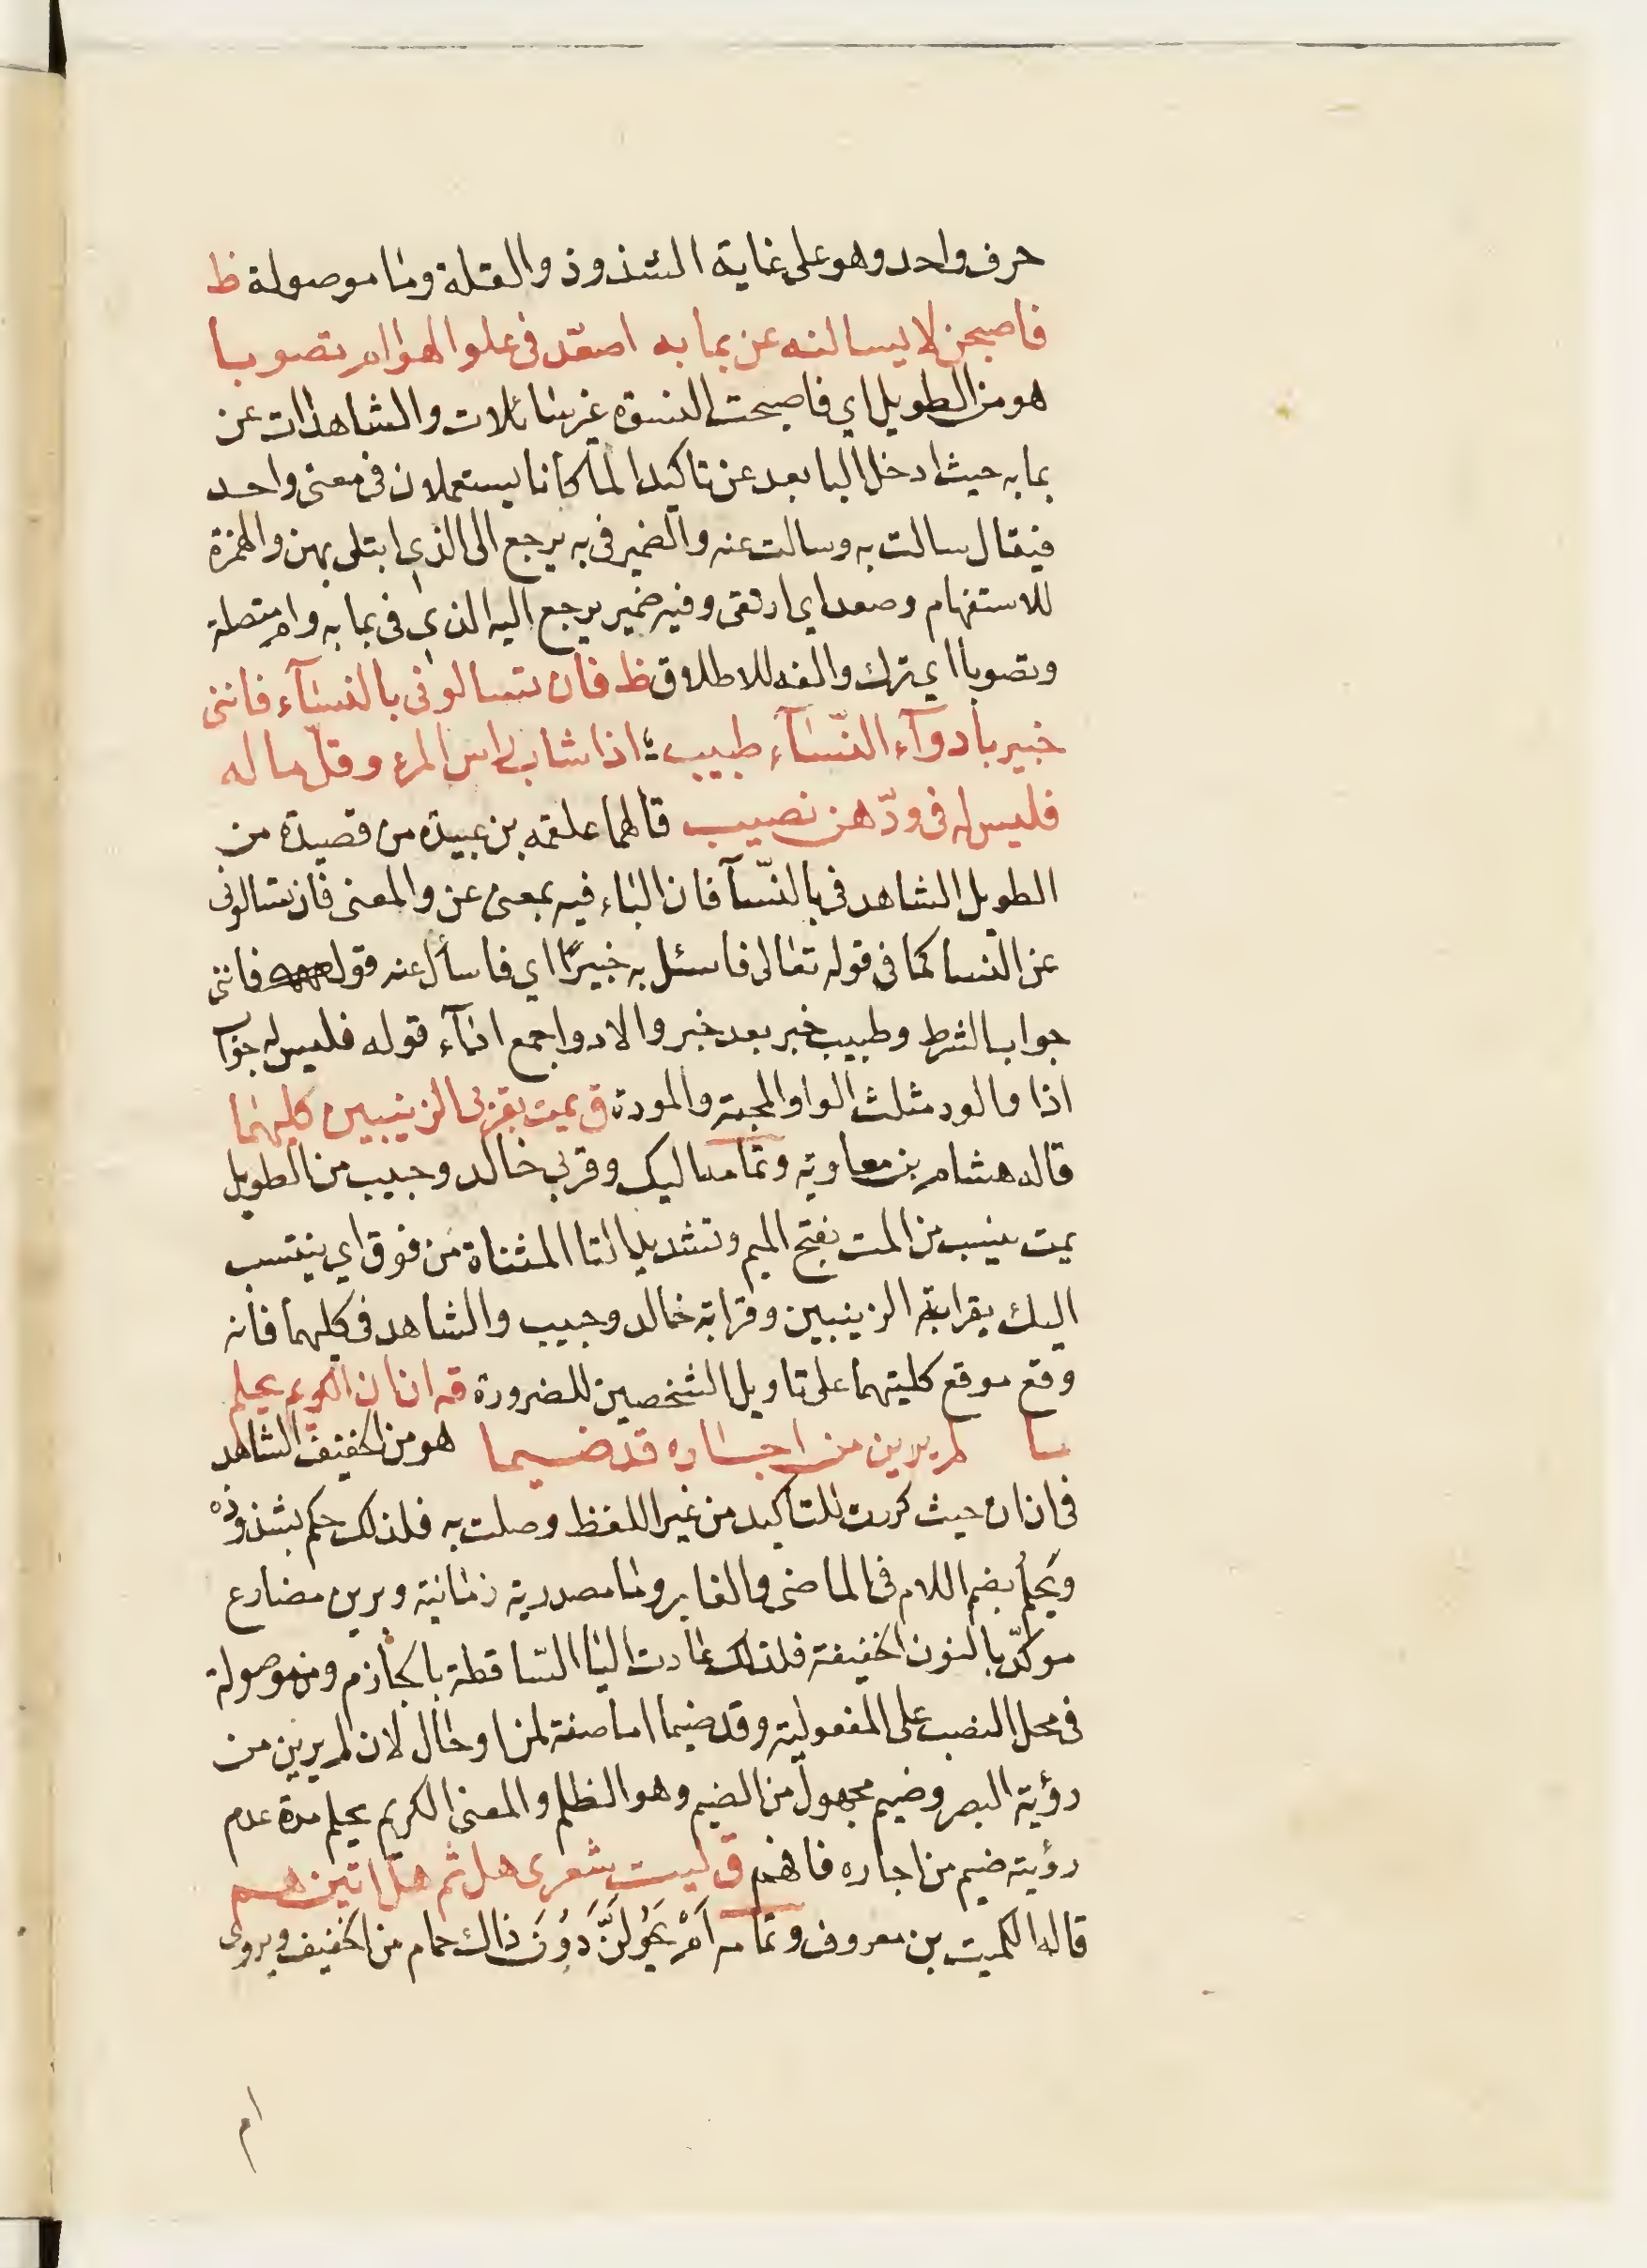 حرف واحد وهو على غاية الشذوذ والقلة وما موصولة ظ
فاصبحن لا يسالنه عن بما به اصعّد فى علو الهوا ام تصوبا
هو من الطويل اي فاصبحت النسوة غير سائلات والشاهد ات عن
بما به حيث ادخل البا بعد عن تاكيدا لما كانا يستعملان فى معنى واحد
فيقال سالت به وسالت عنه والضمير فى به يرجع الى الذي ابتلى بهن والهمزة
للاستفهام وصعد اي ارتقى وفيه ضمير يرجع اليه الذي فى بما به وام متصلة
وتصوبا اي ترك والفه للاطلاق ظ فان تسالونى بالنسآء فاننى
خبير بادوآء النّسآء طبيب ؛ اذا شاب راس المرء وقلّ ماله
فليس له فى ودّهن نصيب قالهما علقمه بن عبيدة من قصيدة من
الطويل الشاهد فى بالنّسآ فان الباء فيه بمعنى عن والمعنى فان تسالونى
عن النسا كما فى قوله تعالى فاسئل به خبيرًا اي فاسأل عنه قوله فاننى
جواب الشرط وطبيب خبر بعد خبر والادوا جمع دآء قوله فليس له جوآ
اذا والود مثلث الواو المحبة والمودة ق يمت بقربى الزينبين كليهما
قاله هشام بن معاوية وتمامه اليك وقربى خالد وحبيب من الطويل
يمت ينسب من المت بفتح الميم وتشديد التا المثناة من فوق اي ينتسب
اليك بقرابة الزينبين وقرابة خالد وحبيب والشاهد فى كليهما فانه
وقع موقع كلتيهما على تاويل الشخصين للضرورة قه ان ان الكريم يحلم
ما لم يرين من اجاره قد ضيما هو من الخفيف الشاهد
فى ان ان حيث كررت للتاكيد من غير اللفظ وصلت به فلذلك حكم بشذوذه
ويَحلُم بضم اللام فى الماضى والغابر وما مصدرية زمانية ويرين مضارع
موكّد بالنون الخفيفة فلذلك عادت اليا السّاقطة بالجازم ومن موصولة
فى محل النصب على المفعولية وقد ضيما اما صفة لمن او حال لان لم يرين من
رؤية البصر وضيم مجهول من الضيم وهو الظلم والمعنى الكريم يحلم مدة عدم
رؤيته ضيم من اجاره فافهم ق ليت شعرى هل ثم هل اتينهم
قاله الكميت بن معروف وتمامه اَمْ يَحُولَنَّ دُونَ ذاك حمام من الخفيف ويروى
ام